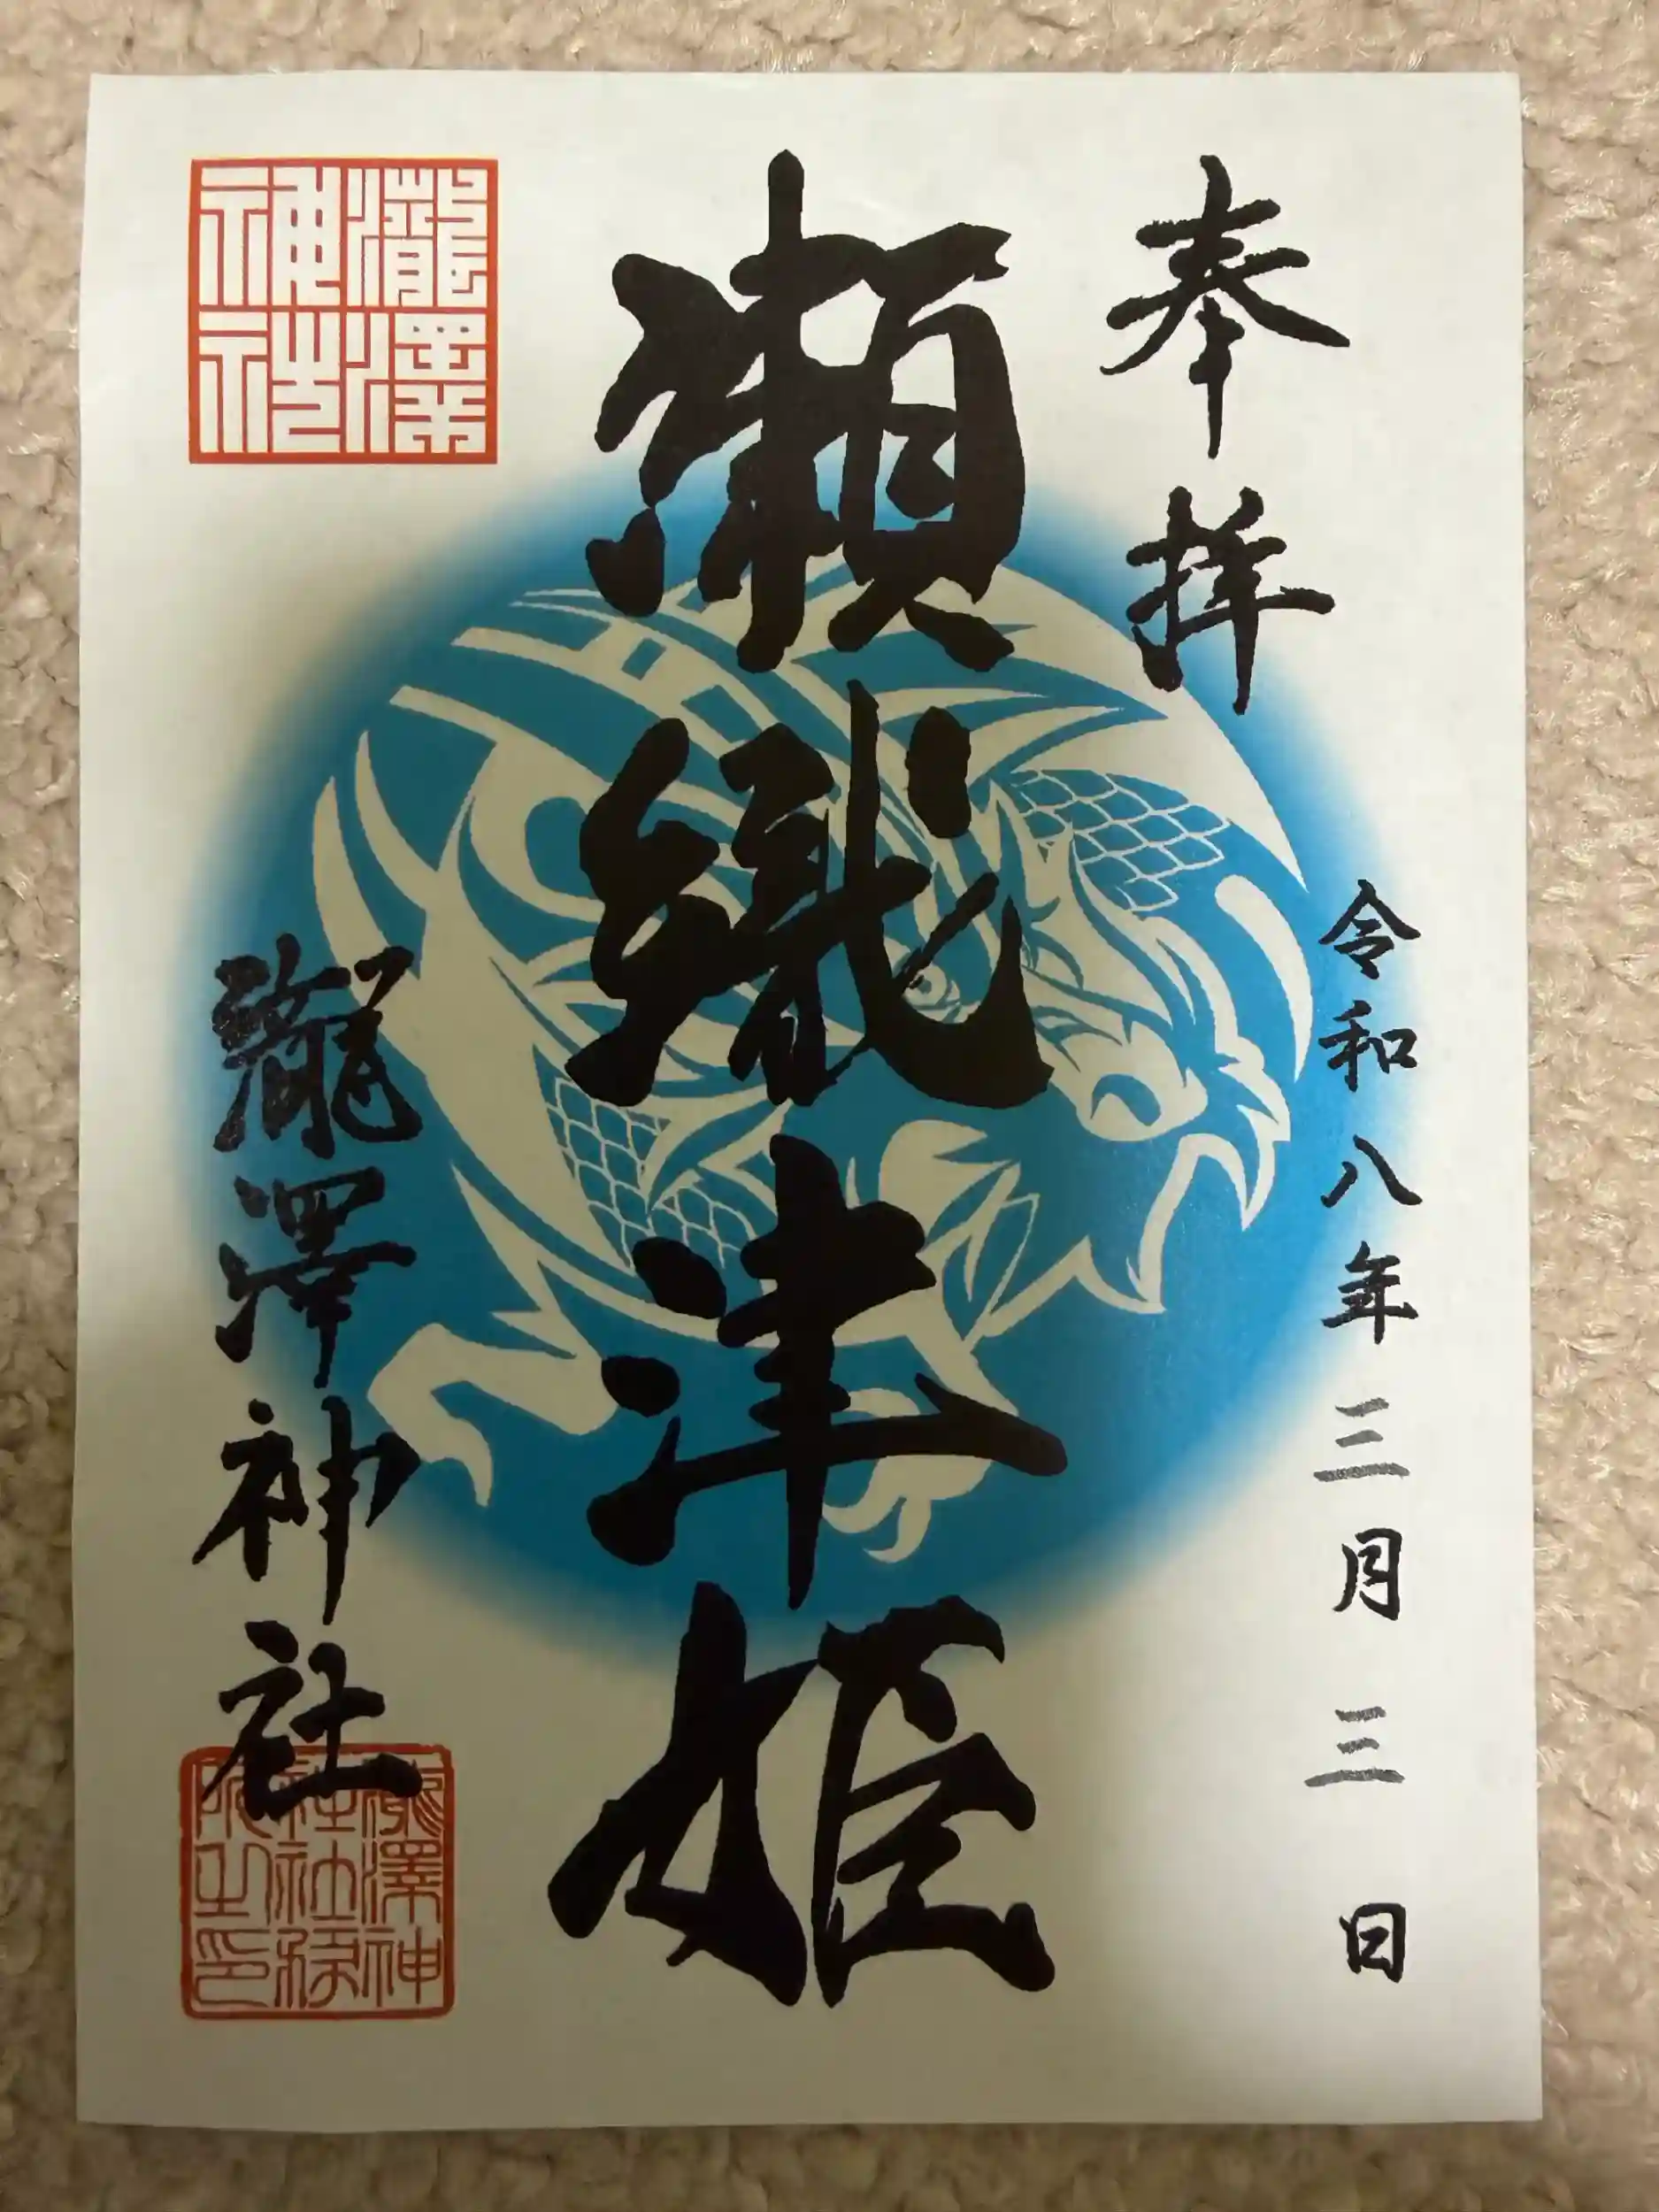 奉拝
令和八年三月三日
瀬織津姫
瀧澤神社
瀧澤
神社
瀧澤神
社社務
所之印